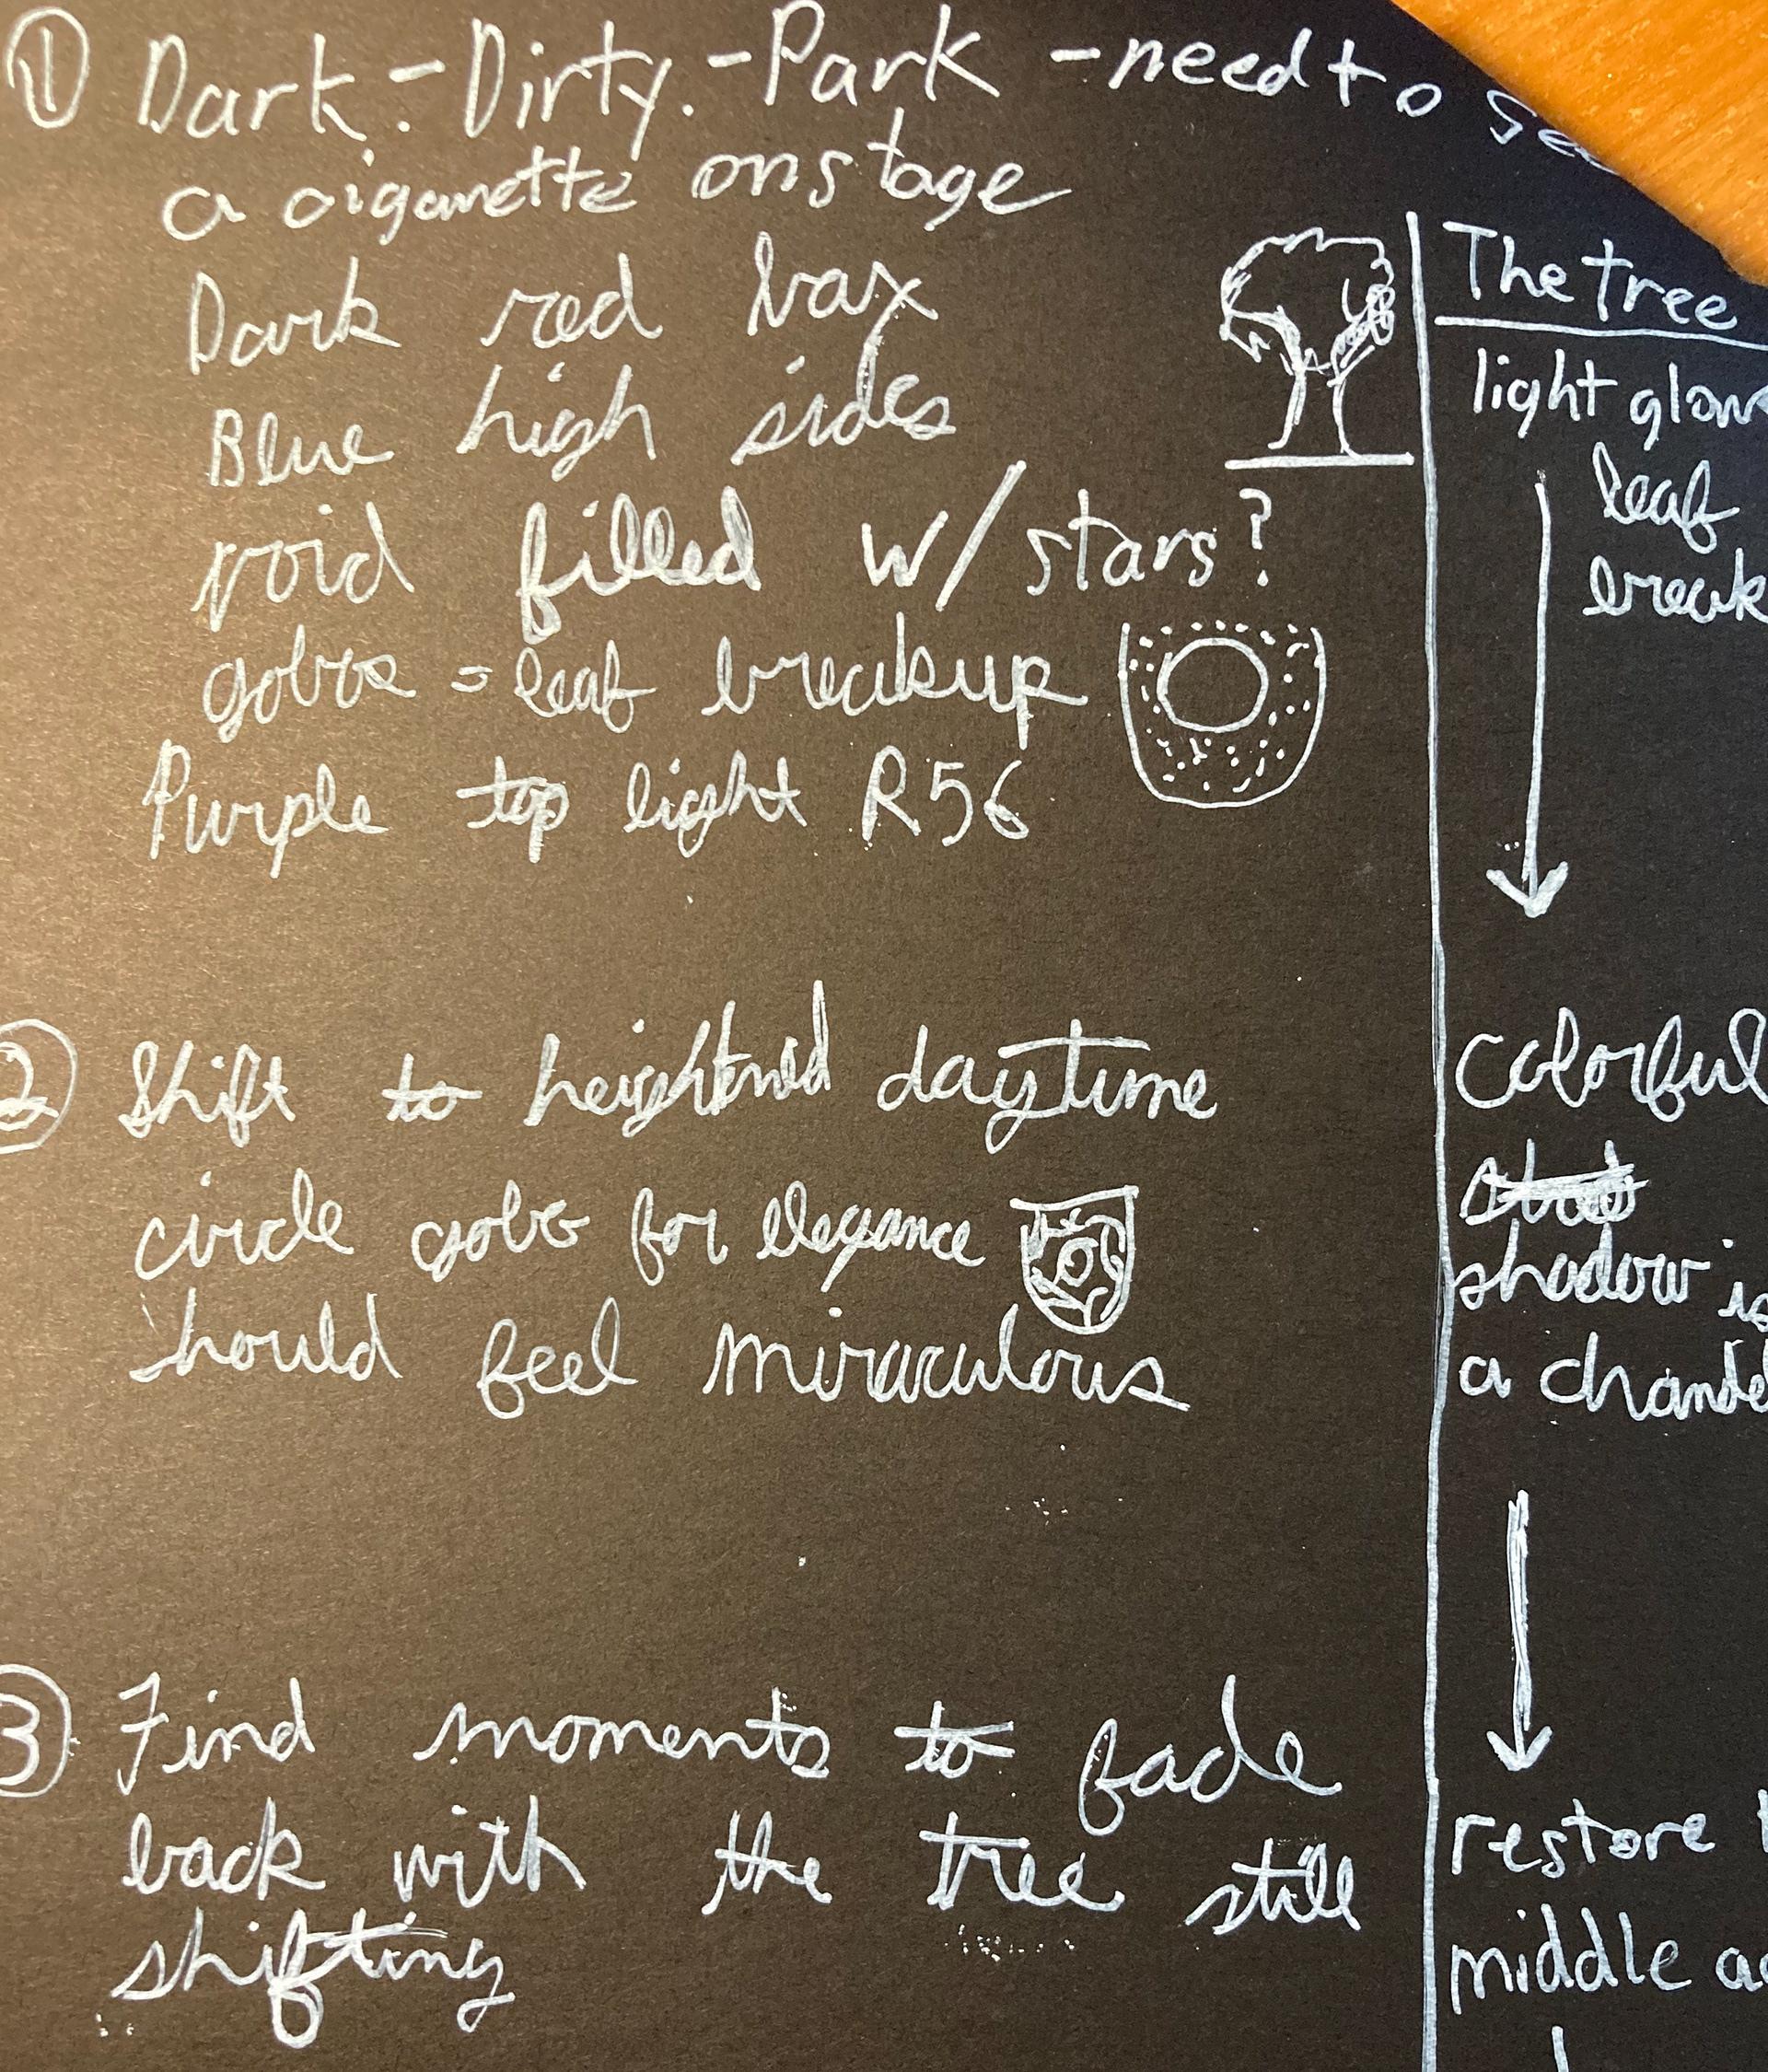 ① Dark. - Dirty. - Park - need to
a cigarette onstage
Dark red bax
Blue high sides
void filled w/ stars?
gobos = leaf breakup
Purple top light R56
② Shift to heightened daytime
circle gobo for elegance
should feel miraculous
③ Find moments to fade
back with the tree still
shifting
The Tree
light glow
leaf
break
Colorful
shadow is
a chandel
restore
middle